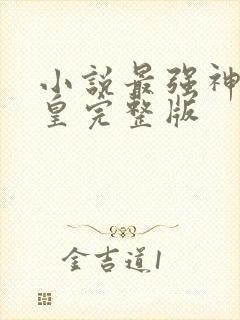 小説最强神
皇完整版
金吉道1